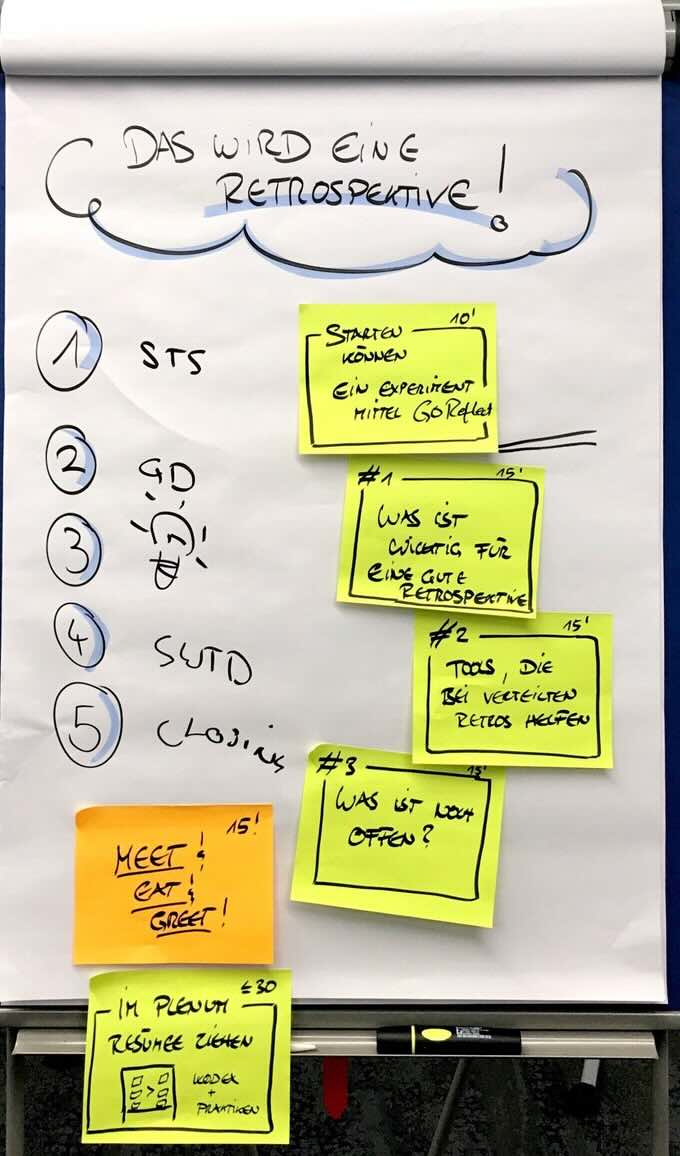 DAS WIRD EINE
RETROSPEKTIVE!
1 STS
2 GD
3
4 SWTD
5 CLOSING
10'
STARTEN
KÖNNEN
EIN EXPERIMENT
MITTEL GOReflect
#1 15'
WAS IST
WICHTIG FÜR
EINE GUTE
RETROSPEKTIVE
#2 15'
TOOLS, DIE
BEI VERTEILTEN
RETROS HELFEN
#3 15'
WAS IST NOCH
OFFEN?
15'
MEET &
EAT &
GREET!
≤30
IM PLENUM
RESÜMEE ZIEHEN
KODEX
+
PRAKTIKEN